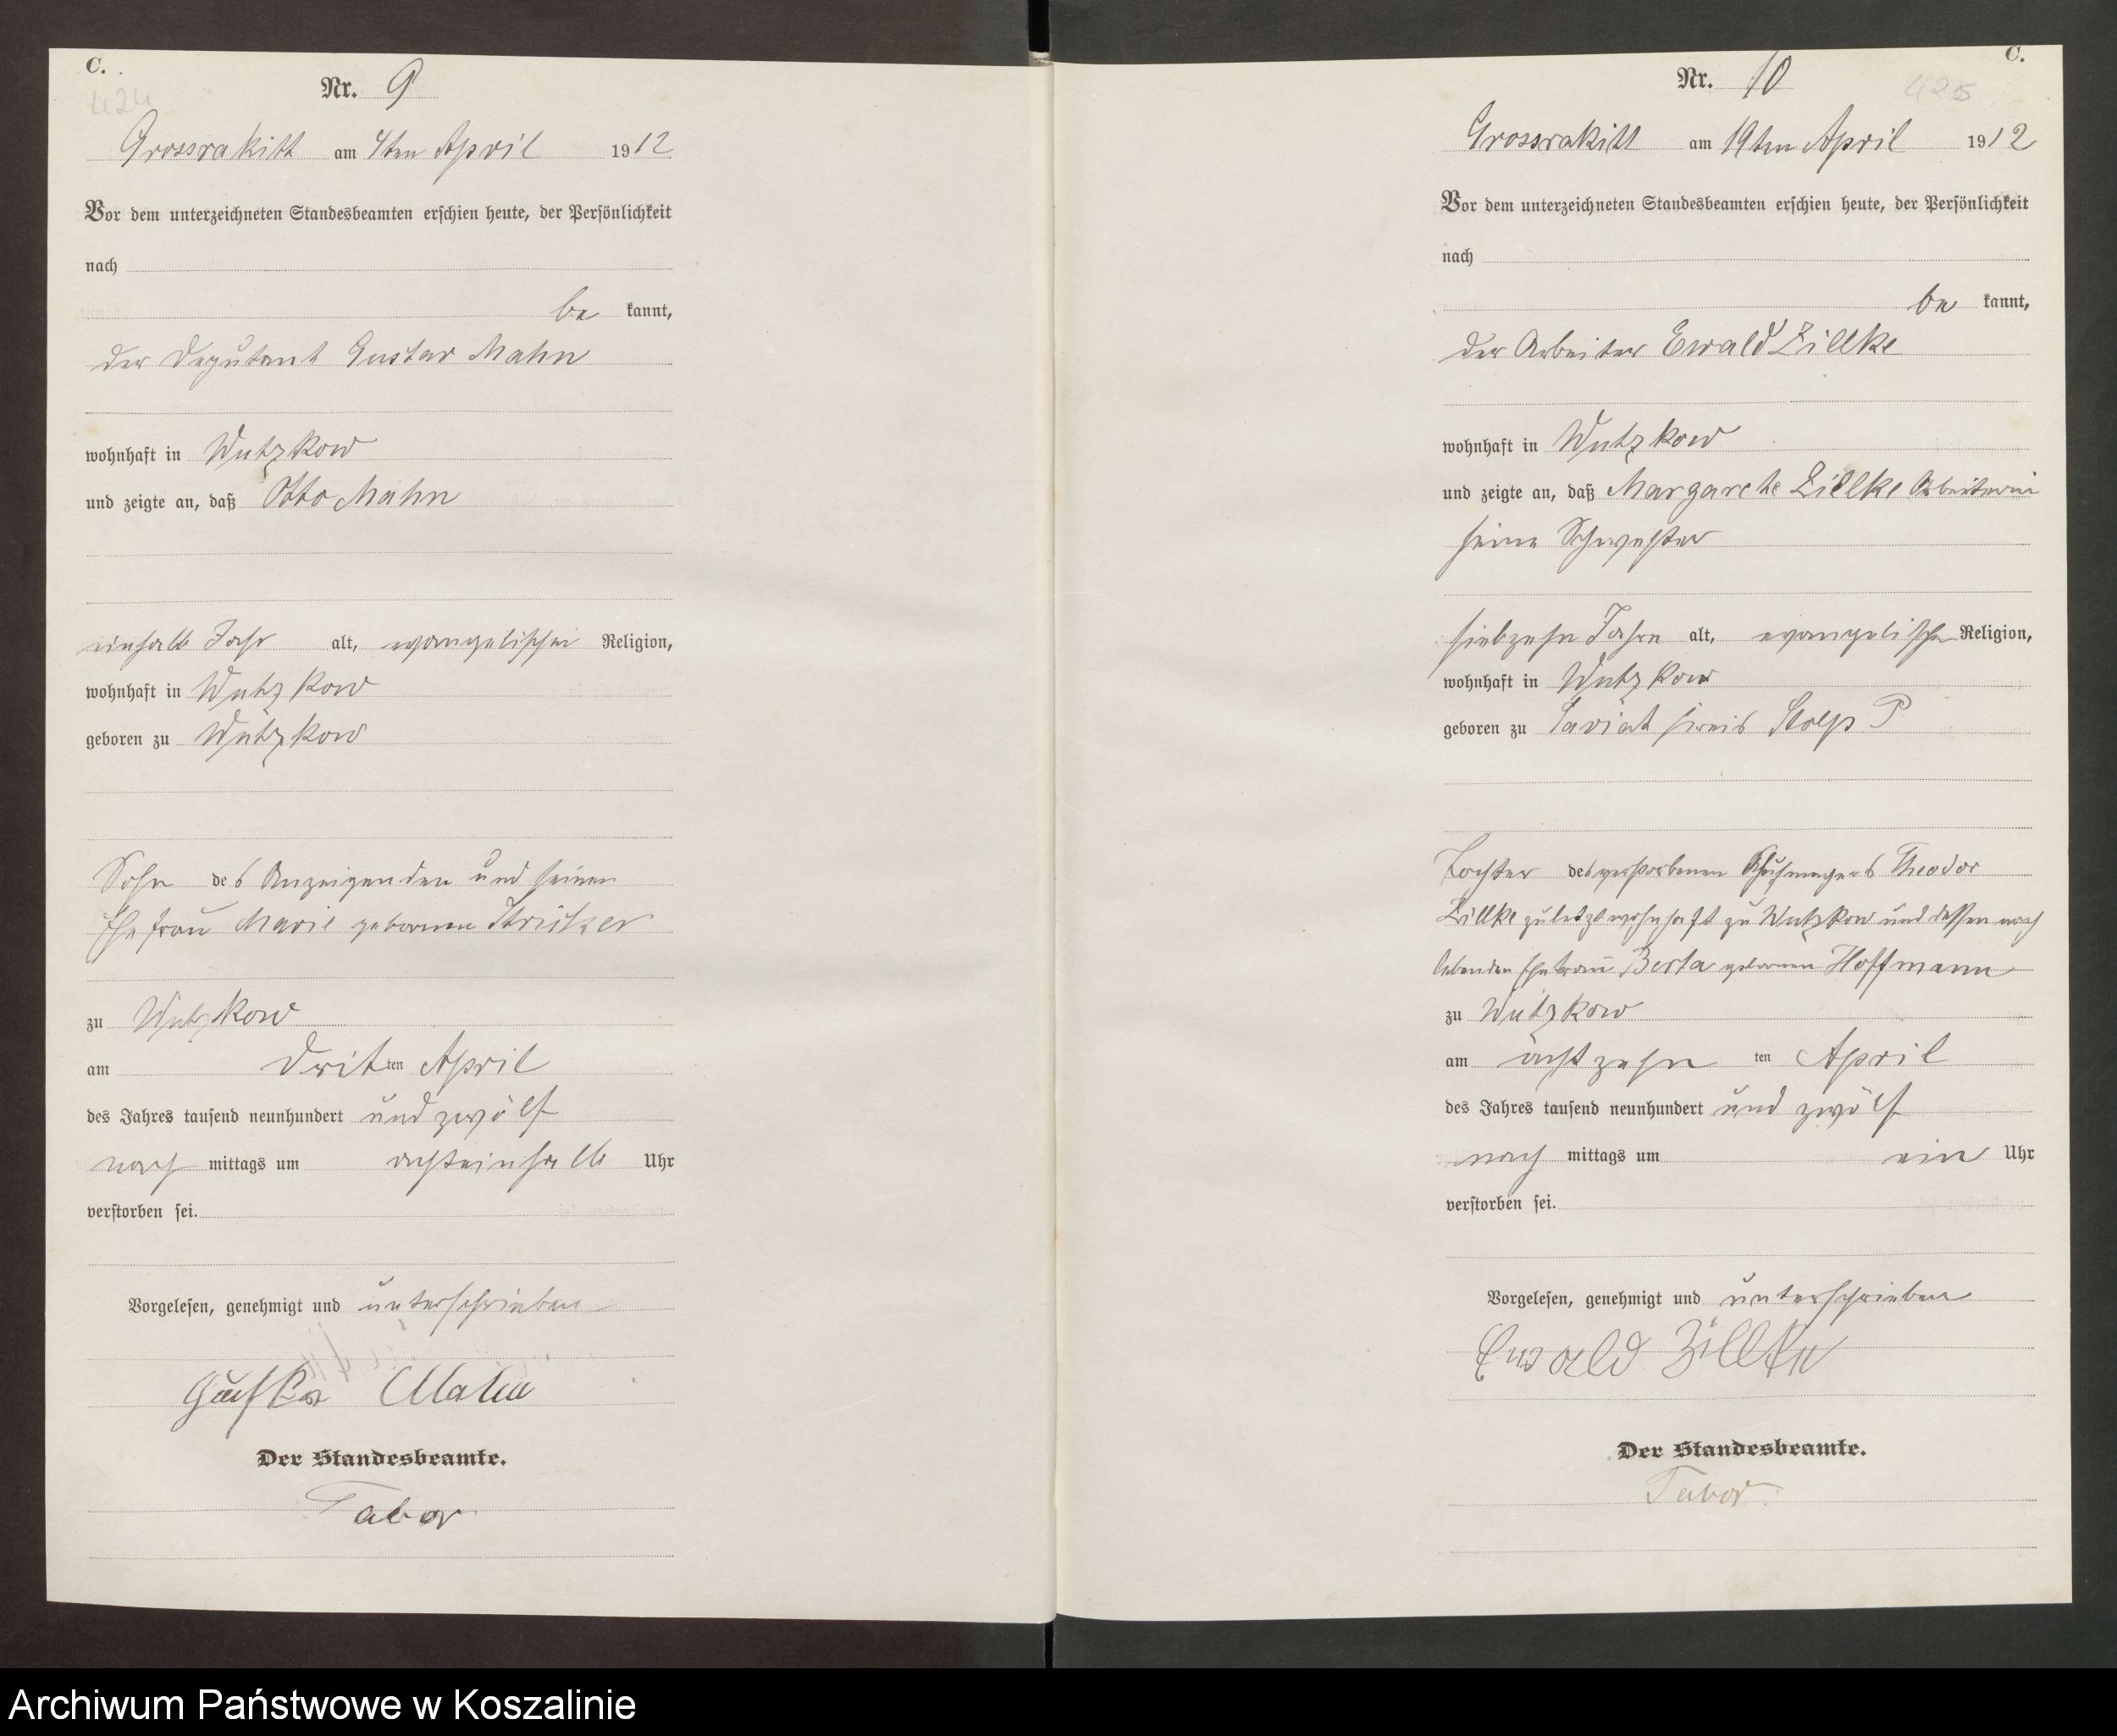 C.
424
Nr. 9
Grossrakitt am 4ten April 1912
Vor dem unterzeichneten Standesbeamten erschien heute, der Persönlichkeit
nach
be kannt,
der Deputant Gustav Mahn
wohnhaft in Wutzkow
und zeigte an, daß Otto Mahn
einhalb Jahr alt, evangelischer Religion,
wohnhaft in Wutzkow
geboren zu Wutzkow
Sohn des Anzeigenden und seiner
Ehefrau Marie geborenen
zu Wutzkow
am dritten April
des Jahres tausend neunhundert und zwölf
nach mittags um achteinhalb Uhr
verstorben sei.
Vorgelesen, genehmigt und unterschrieben
Gustav Mahn
Der Standesbeamte.
Tabor
C.
425
Nr. 10
Grossrakitt am 19ten April 1912
Vor dem unterzeichneten Standesbeamten erschien heute, der Persönlichkeit
nach
be kannt,
der Arbeiter Ewald Zillke
wohnhaft in Wutzkow
und zeigte an, daß Margarete Zillke Arbeiterin
seine Schwester
siebzehn Jahre alt, evangelischer Religion,
wohnhaft in Wutzkow
geboren zu Kreis Stolp P
Tochter des verstorbenen Theodor
Zillke zuletzt wohnhaft zu Wutzkow und dessen noch
lebenden Ehefrau Berta geborenen Hoffmann
zu Wutzkow
am achtzehn ten April
des Jahres tausend neunhundert und zwölf
nach mittags um ein Uhr
verstorben sei.
Vorgelesen, genehmigt und unterschrieben
Ewald Zillke
Der Standesbeamte.
Tabor.
Archiwum Państwowe w Koszalinie